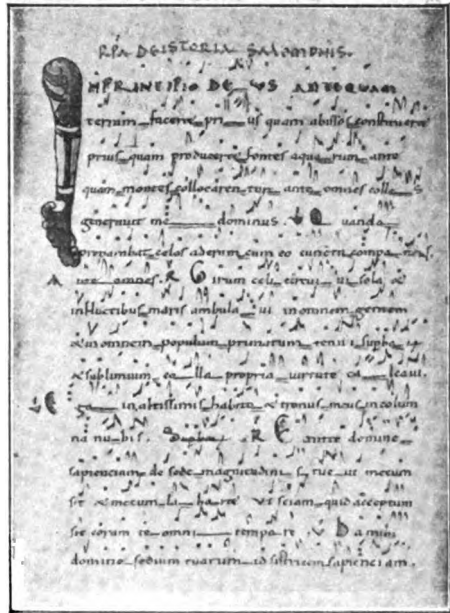 RPA DE ISTORIA SALOMONIS.
IN PRINCIPIO DE US ANTEQUAM
terram faceret pri us quam abissos constitueret
prius quam produceret fontes aqua rum ante
quam montes collocarentur ante omnes colles
generavit me dominus. Quando
preparabat celos aderam cum eo cuncta componens.
ante omnes. R Girum celi circui vi sola et
in fluctibus maris ambula vi in omnem gentem
et in omnem populum primatum tenui
et sublimium colla propria virtute cal cavi.
Ego in altissimis habito et tronus meus in colum
na nu bis. R E mitte domine
sapienciam de sede magnitudinis tue ut mecum
sit et mecum la boret Ut sciam quid acceptum
sit coram te omni tempore V Da mihi
domine sedium tuarum adsistricem sapienciam.